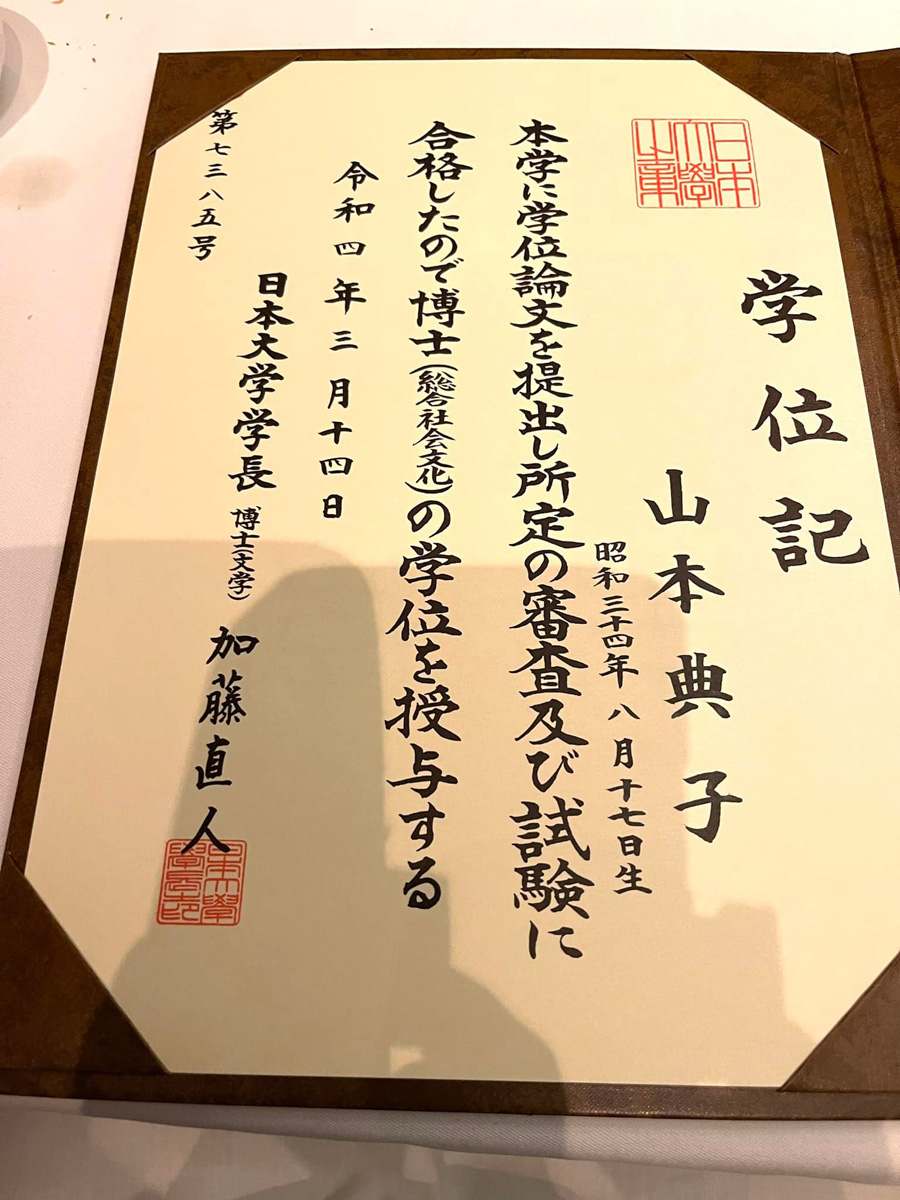 学位記
山本典子
昭和三十四年八月十七日生
本学に学位論文を提出し所定の審査及び試験に
合格したので博士(総合社会文化)の学位を授与する
令和四年三月十四日
日本大学学長 博士(文学) 加藤直人
第七三八五号
日本
大學
之章